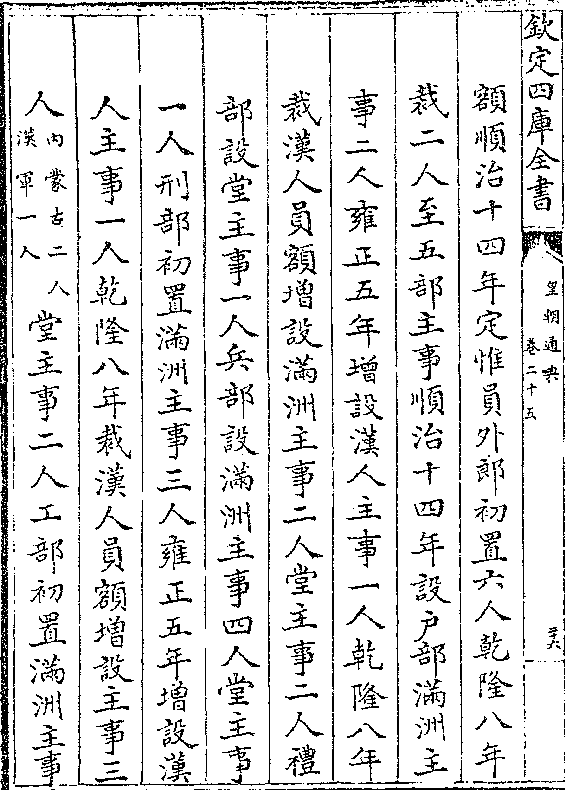 欽定四庫全書
皇朝通典
卷二十五
三六
額順治十四年定惟員外郎初置六人乾隆八年
裁二人至五部主事順治十四年設戶部滿洲主
事二人雍正五年增設漢人主事一人乾隆八年
裁漢人員額增設滿洲主事二人堂主事二人禮
部設堂主事一人兵部設滿洲主事四人堂主事
一人刑部初置滿洲主事三人雍正五年增設漢
人主事一人乾隆八年裁漢人員額增設主事三
人內蒙古二人漢軍一人堂主事二人工部初置滿洲主事